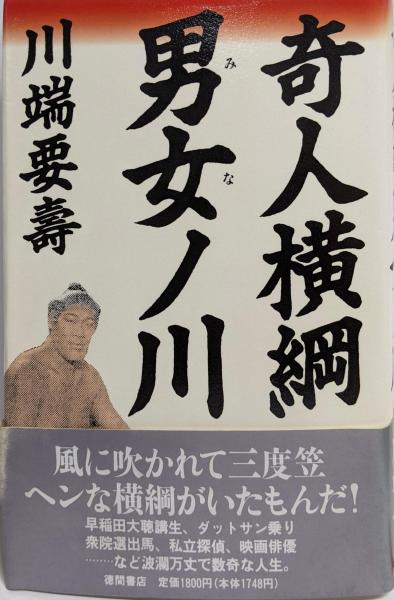 奇人横綱
男女ノ川
みな
川端要壽
風に吹かれて三度笠
ヘンな横綱がいたもんだ！
早稲田大聴講生、ダットサン乗り
衆院選出馬、私立探偵、映画俳優
………など波瀾万丈で数奇な人生。
徳間書店 定価1800円（本体1748円）